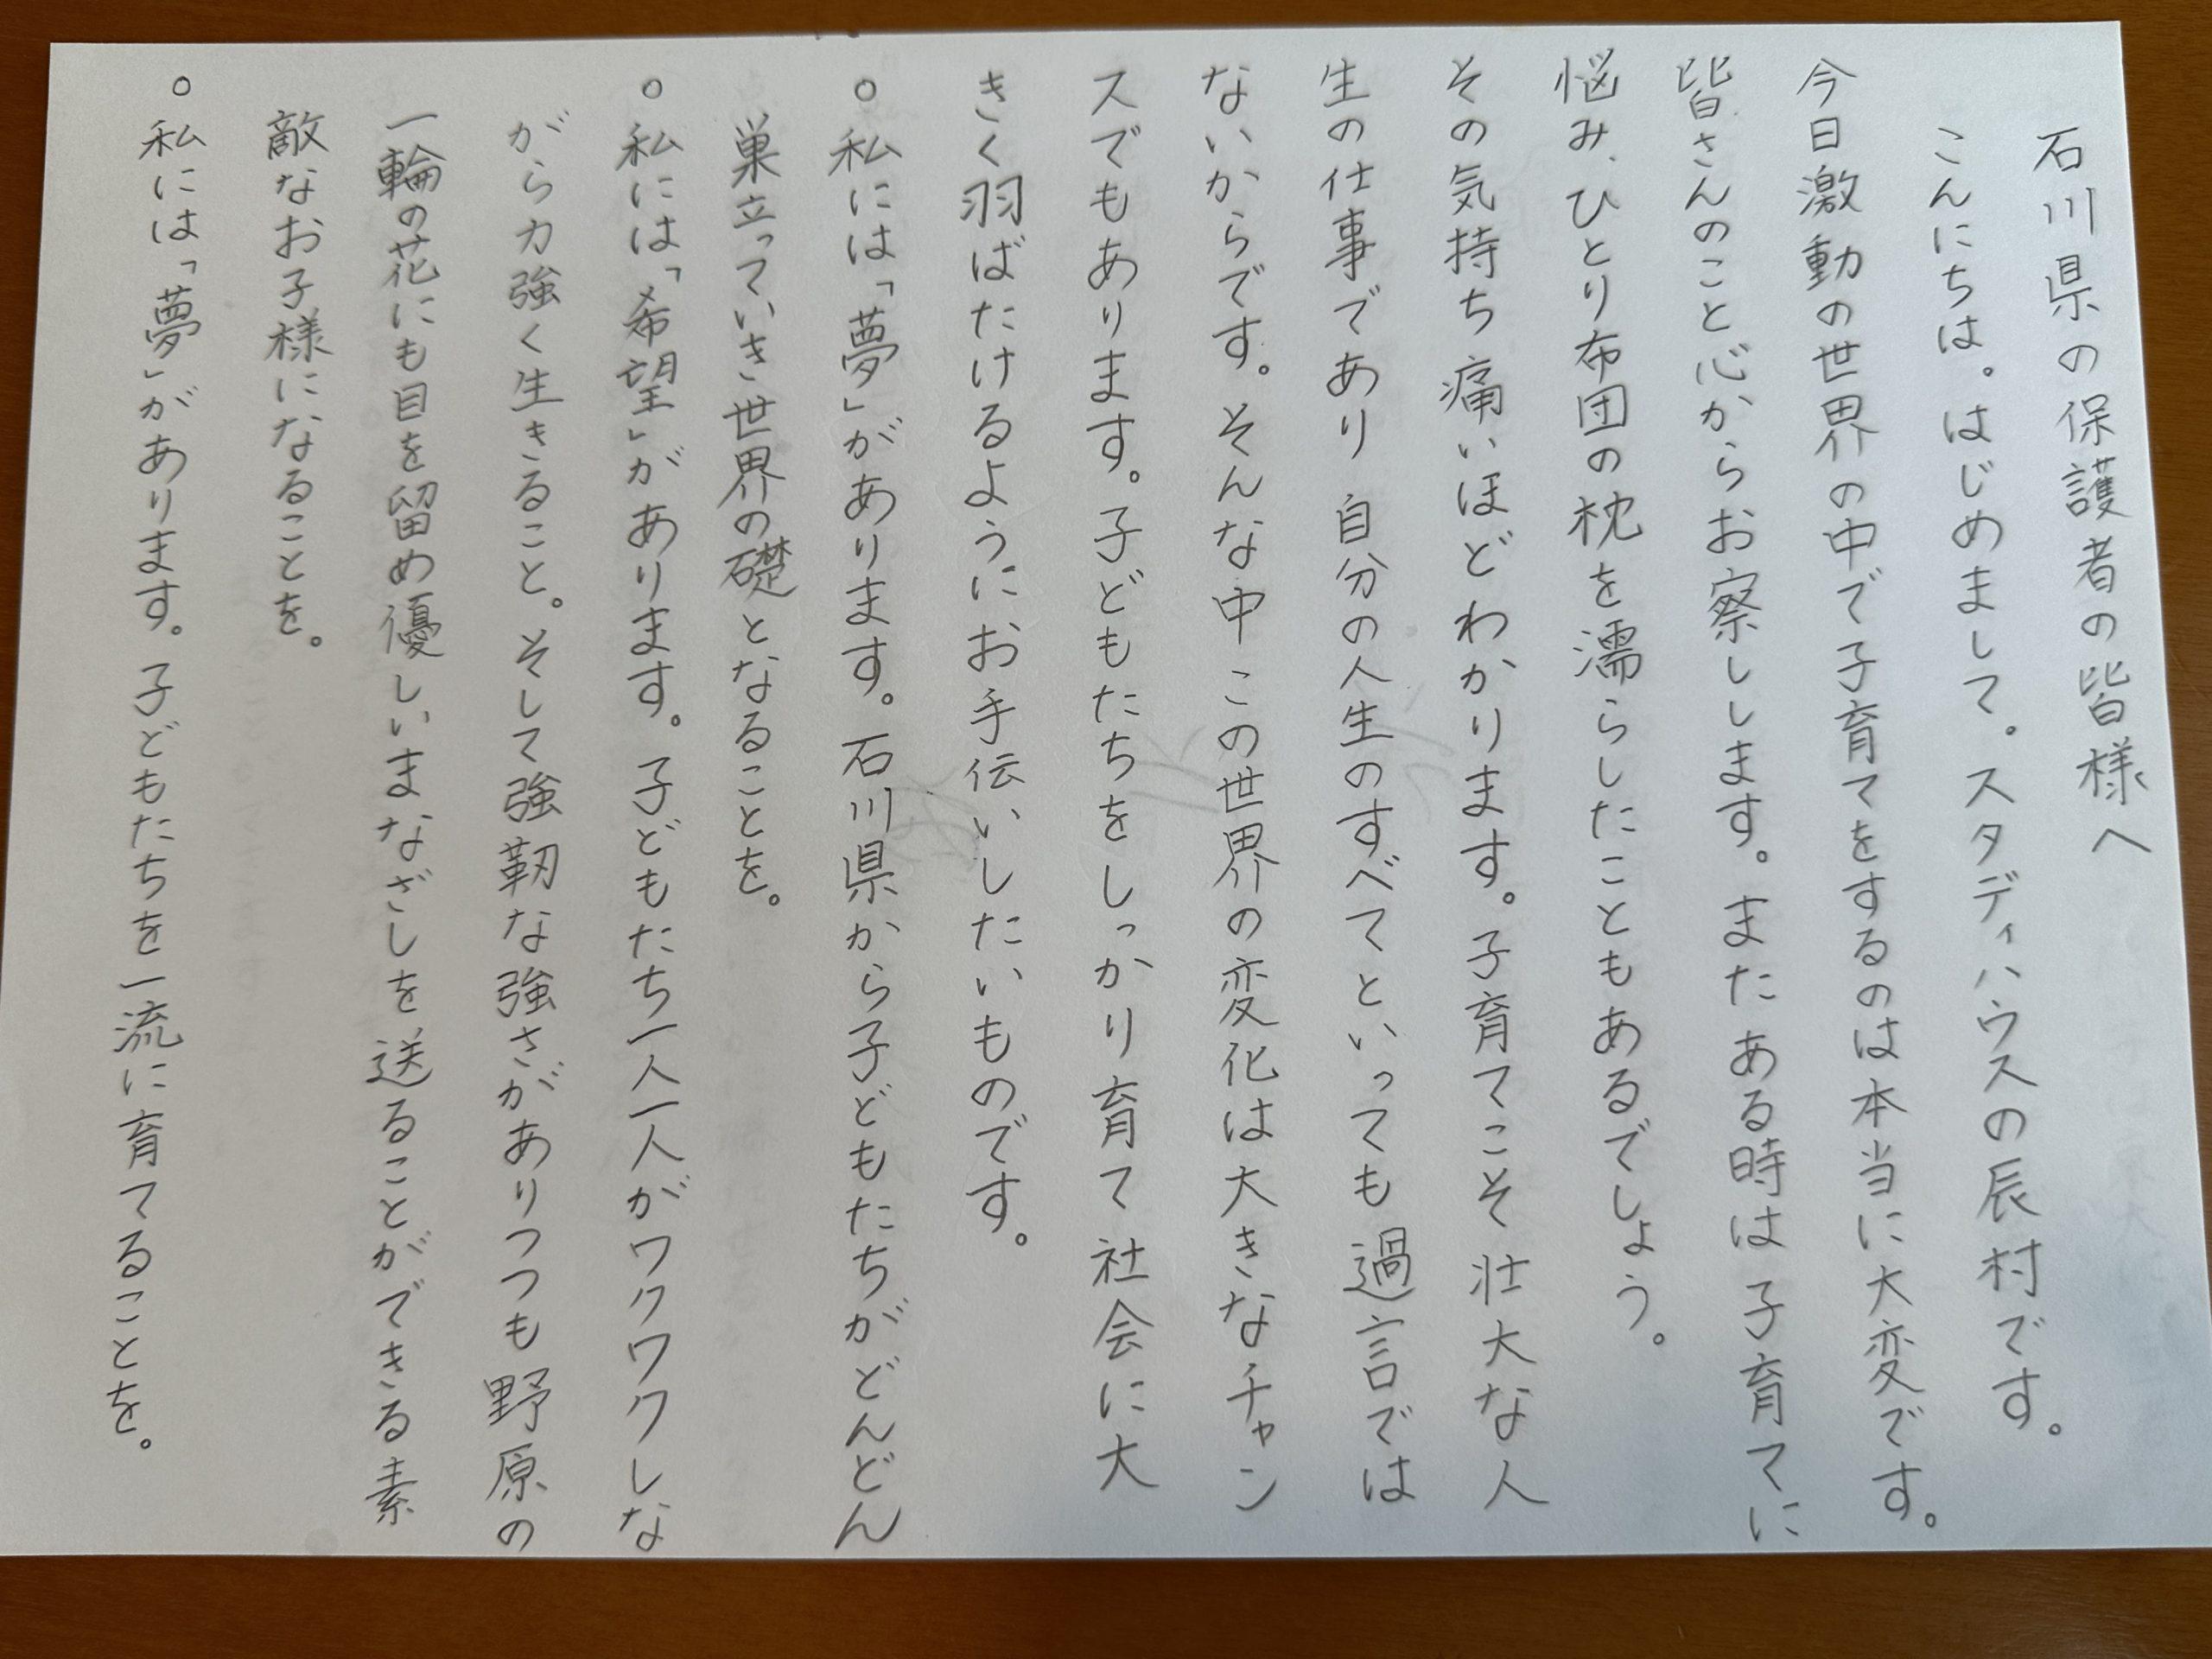 石川県の保護者の皆様へ
こんにちは。はじめまして。スタディハウスの辰村です。
今日激動の世界の中で子育てをするのは本当に大変です。
皆さんのこと心からお察しします。またある時は子育てに
悩み、ひとり布団の枕を濡らしたこともあるでしょう。
その気持ち痛いほどわかります。子育てこそ壮大な人
生の仕事であり自分の人生のすべてといっても過言では
ないからです。そんな中この世界の変化は大きなチャン
スでもあります。子どもたちをしっかり育て社会に大
きく羽ばたけるようにお手伝いしたいものです。
○私には「夢」があります。石川県から子どもたちがどんどん
巣立っていき世界の礎となることを。
○私には「希望」があります。子どもたち一人一人がワクワクしな
がら力強く生きること。そして強靭な強さがありつつも野原の
一輪の花にも目を留め優しいまなざしを送ることができる素
敵なお子様になることを。
○私には「夢」があります。子どもたちを一流に育てることを。